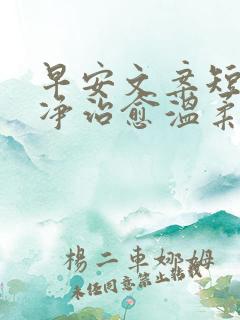 早安文案短
净治愈温柔
楊二車娜姆
未经同意禁止转载